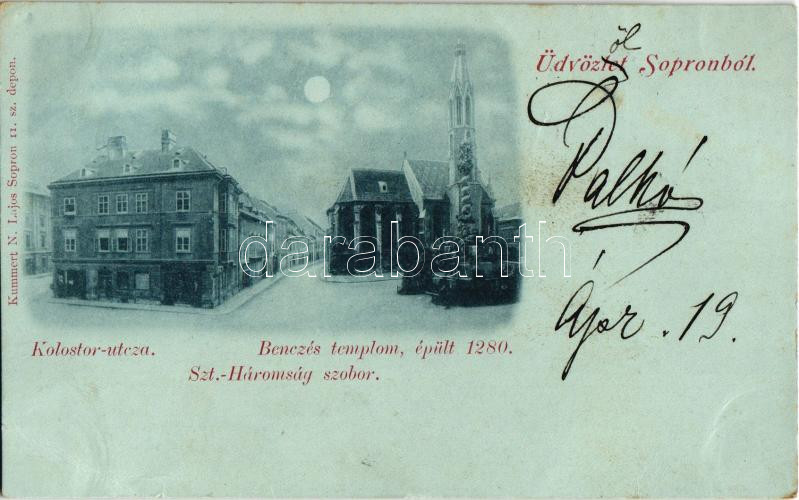 Üdvözlet Sopronból.
ől
Palkó
Ápr. 19.
Kolostor-utcza.
Benczés templom, épült 1280.
Szt.-Háromság szobor.
Kummert N. Lajos Sopron 11. sz. depon.
darabanth